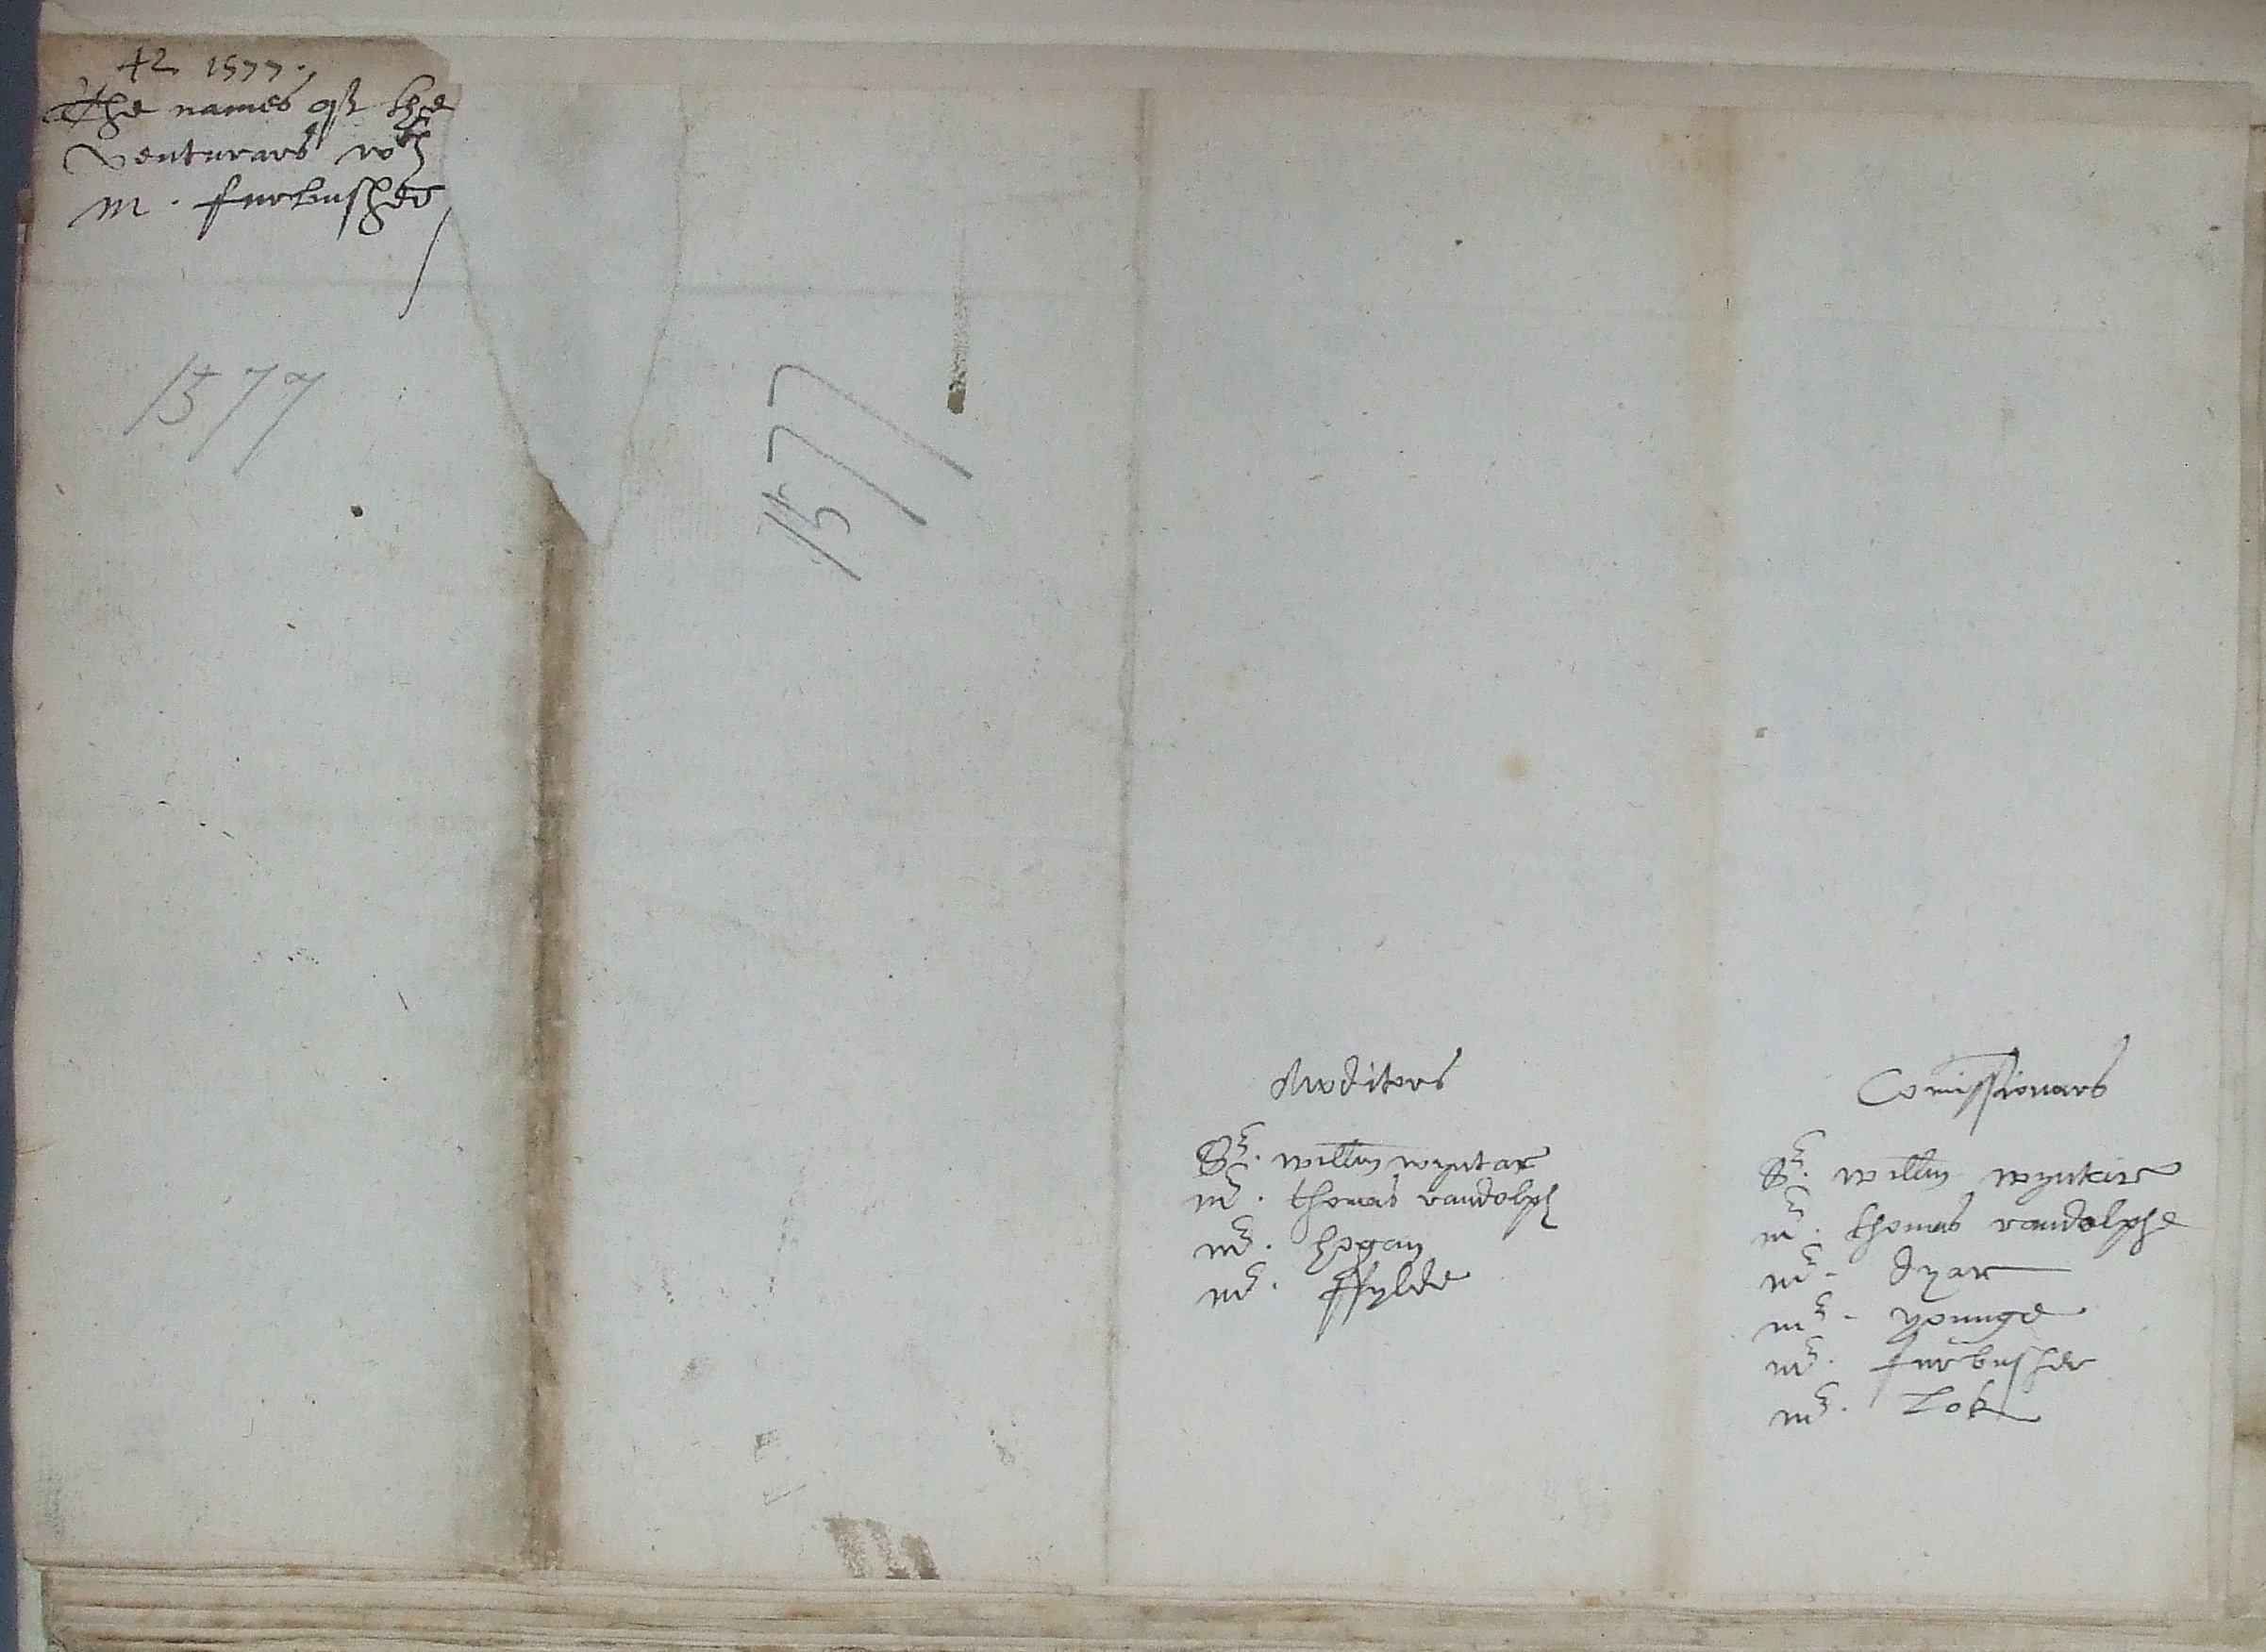 42 1577.
The names of the
venturars wth
m. furbusher
1577
1577
Awditors
Sr. willm wyntar
mr. thomas randolph
mr. hogan
mr. ffylde
Comissionars
Sr. willm wynter
mr. thomas randolphe
mr. dyar
mr. younge
mr. furbusher
mr. Lok